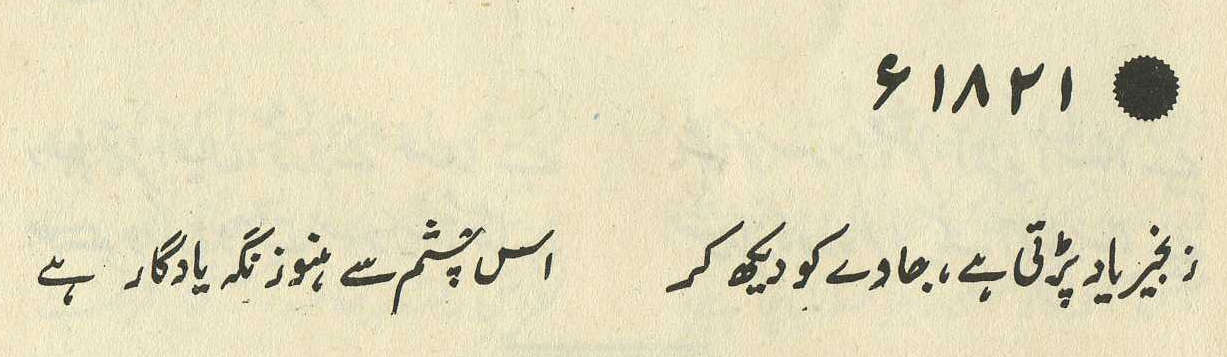 ۱۸۲۱ء
زنجیر یاد پڑتی ہے، جادے کو دیکھ کر اس چشم سے ہنوز نگہ یادگار ہے